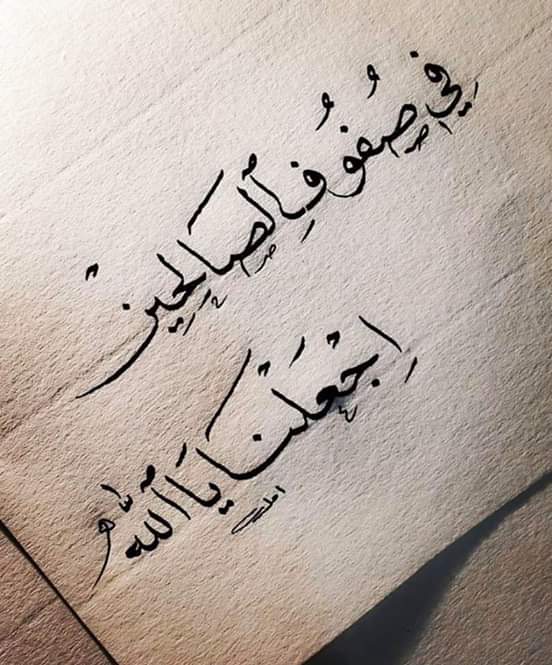 فِي صُفُوفِ ٱلصَّالِحِينْ
اِجْعَلْنَا يَا ٱللَّه